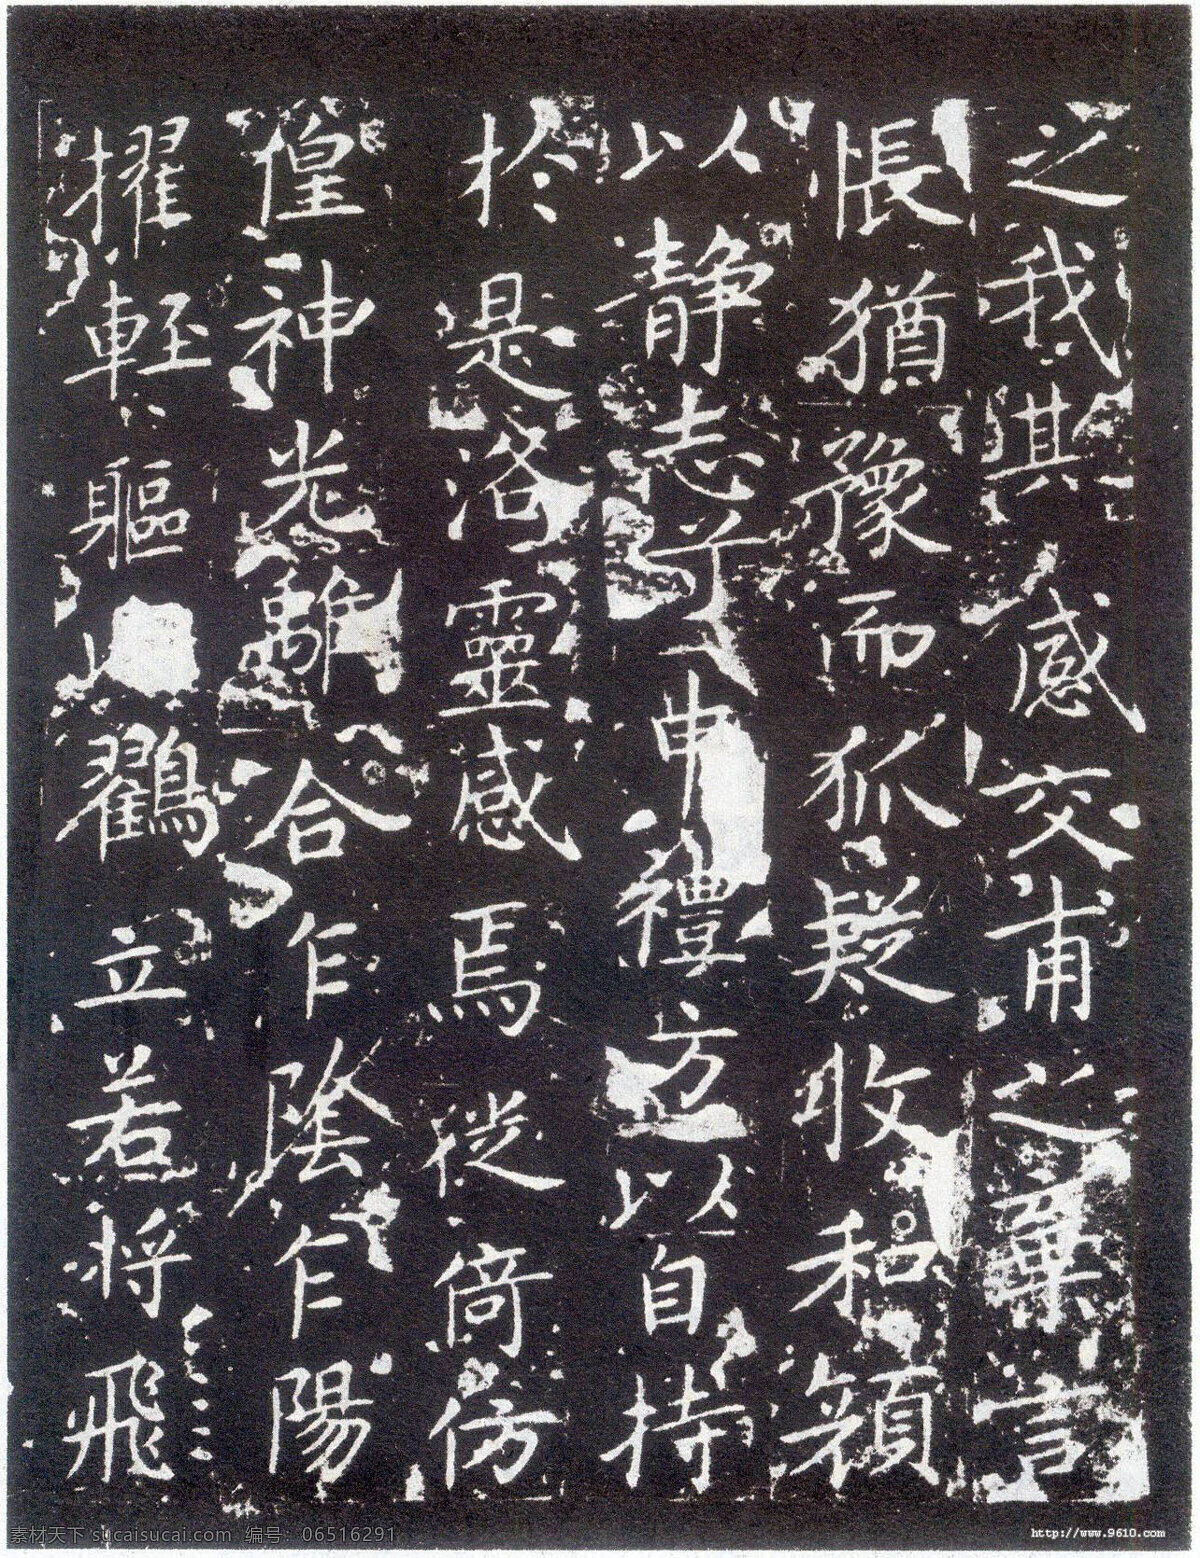 之我其感交甫之棄言
悵猶豫而狐疑收和顏
以靜志兮申禮方以自持
於是洛靈感焉徙倚仿
偟神光離合乍陰乍陽
擢輕軀以鶴立若將飛
http://www.9610.com
素材天下 sucaisucai.com 编号：06516291